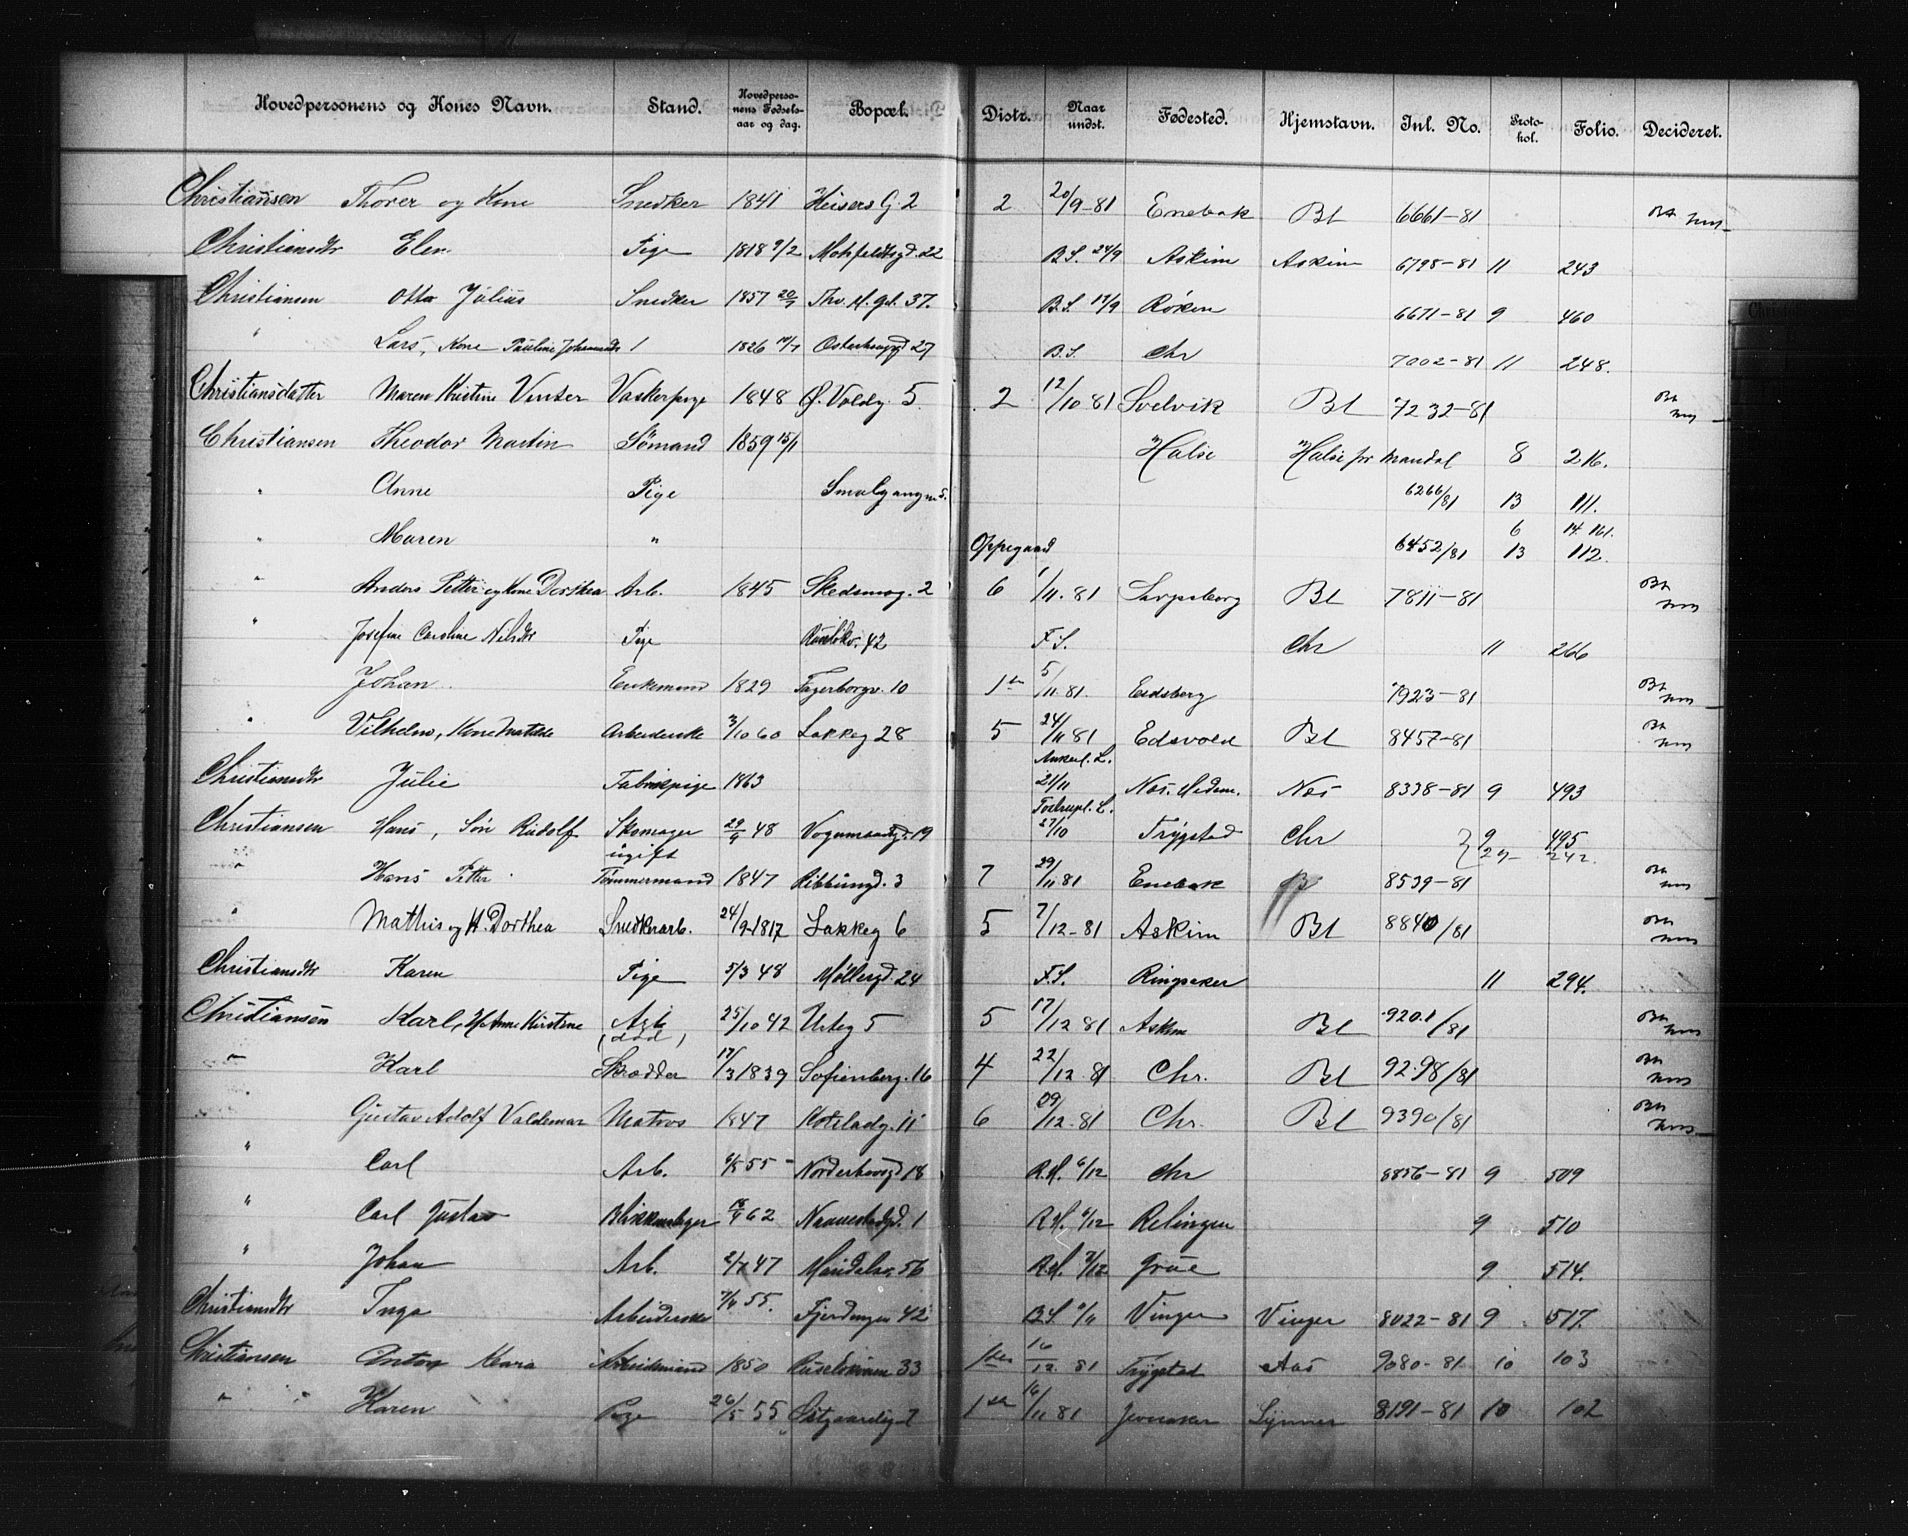 Hovedpersonens og Kones Navn. Stand. Hovedpersonens Fødselsaar og dag. Bopæl. Distr. Naar undst. Fødested. Hjemstavn. Inl. No. Protokol. Folio. Decideret.
Christiansen Thorer og Kone Snedker 1841 Heisers G. 2 2 20/9-81 Enebak Bl 6661-81
Christiansdtr Elen Pige 1818 9/2 22 B.S. 24/9 Askim Askim 6798-81 11 243
Christiansen Otto Julius Snedker 1857 Thv. M. gd. 37. B.S. 17/9 Røken 6671-81 9 460
" Lars, Kone Pauline 1826 27 B.S. Chr 7002-81 11 248.
Christiansdatter Maren Kristine Vinter Vaskerpige 1848 Ø. Voldg. 5. 2 12/10 81 Svelvik Bl 7232-81
Christiansen Theodor Martin Sømand 1859 15/1 Halse Halse pr Mandal 8 216.
" Anne Pige Smalgangen 5. 6266/81 13 111.
6 14. 161.
" Maren " Oppegaard 6452/81 13 112.
" Anders Petter og Kone Dorthea Arb. 1845 Skedsmog. 2 6 1/11. 81 Sarpsborg Bl 7811-81
" Josefine Caroline Nilsdtr Pige 42 F.S. Chr 11 266
Johan Enkemand 1829 Fagerborgv. 10 1ste 5/11. 81 Eidsberg 7923-81
" Vilhelm, Kone Matilde Arbeiderske 3/10 60 Lakkeg 28 5 24/11 81 Edsvold Bl 8457-81
Ankerl. L.
Christiansdtr Julie Fabrikpige 1863 21/11 Nes. Hedem. Nes 8338-81 9 493
Tostrupl. L.
Christiansen Hans, Søn Rudolf Skomager 29/9 48 Vognmandsgd. 19 27/10 Trygstad Chr 9 495
ugift 242.
" Hans Petter Tømmermand 1847 Ribbungd. 3 7 29/11 81 Enebak Bl 8539-81
" Mathis og H. Dorthea Snedkerarb. 24/9-1817 Lakkeg 6 5 7/12-81 Askim Bl 8840/81
Christiansdtr Karen Pige 5/3 48 Møllergd. 24 F.S. Ringsaker 11 294.
Christiansen Karl, H Anne Kirstine Arb 25/10 42 Urteg 5 5 17/12 81 Askim Bl 9201/81
(død)
" Karl Skrædder 17/3 1839 Sofienberg. 16 4 22/12 81 Chr. Bl 9298/81
Gustav Adolf Valdemar Matros 1847 11 6 29/12. 81 Chr. Bl 9390/81
" Carl Arb. 6/5 55 Norderhovsgd 18 R.H. 6/12 Chr 8856-81 9 509
" Carl Gustav Blikkenslager 62 1 R.H. 6/12 Relingen 9 510
" Johan Arb. 2/7 47 Maridalsv. 56 R.H. 7/12 Grue 9 514.
Christiansdtr Inga Arbeiderske 7/9 55. Fjerdingen 42 B.S. 9/11 Vinger Vinger 8022-81 9 517.
Christiansen Anton Arbeidsmand 1850 33 1ste 16/12. 81 Trygstad Aas 9080-81 10 103
" " Karen Pige 26/5 55 7 1ste 16/11 81 Jevnaker 8191-81 10 102